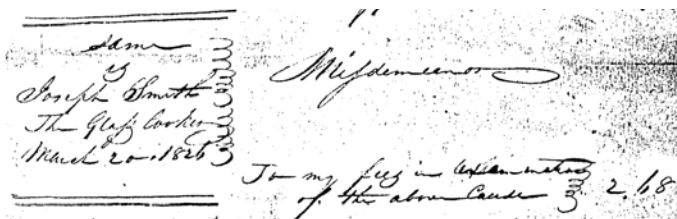 same
vs
Joseph Smith
The Glass Looker
March 20, 1826
Misdemeanor
To my fees in examination
of the above Cause 2.68